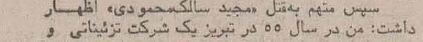 سپس متهم به‌قتل «مجید سالک‌محمودی» اظهـــار
داشت: من در سال ۵۵ در تبریز یک شرکت تزئیناتی و